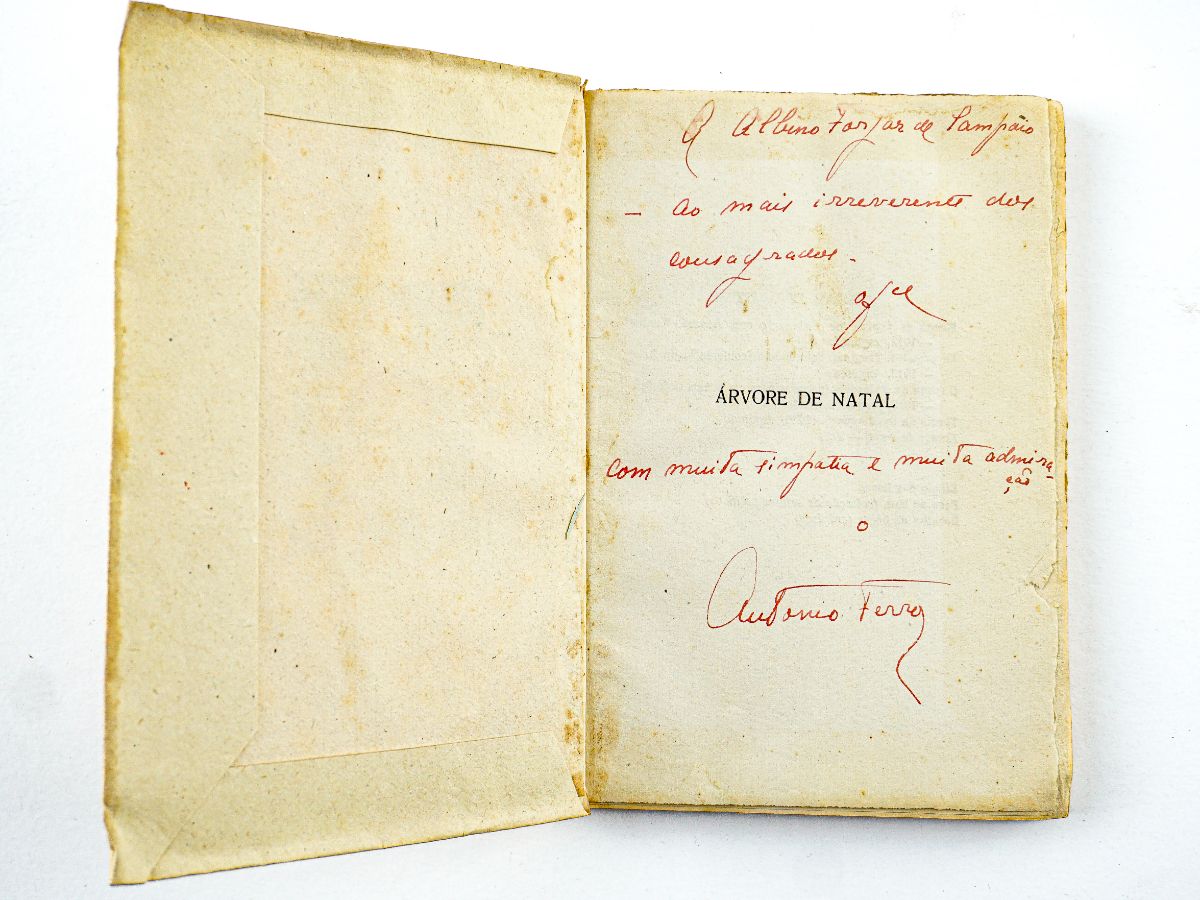 A Albino Forjaz de Sampaio
– Ao mais irreverente dos
consagrados.
ÁRVORE DE NATAL
com muita simpatia e muita admira-
ção
o
Antonio Ferro